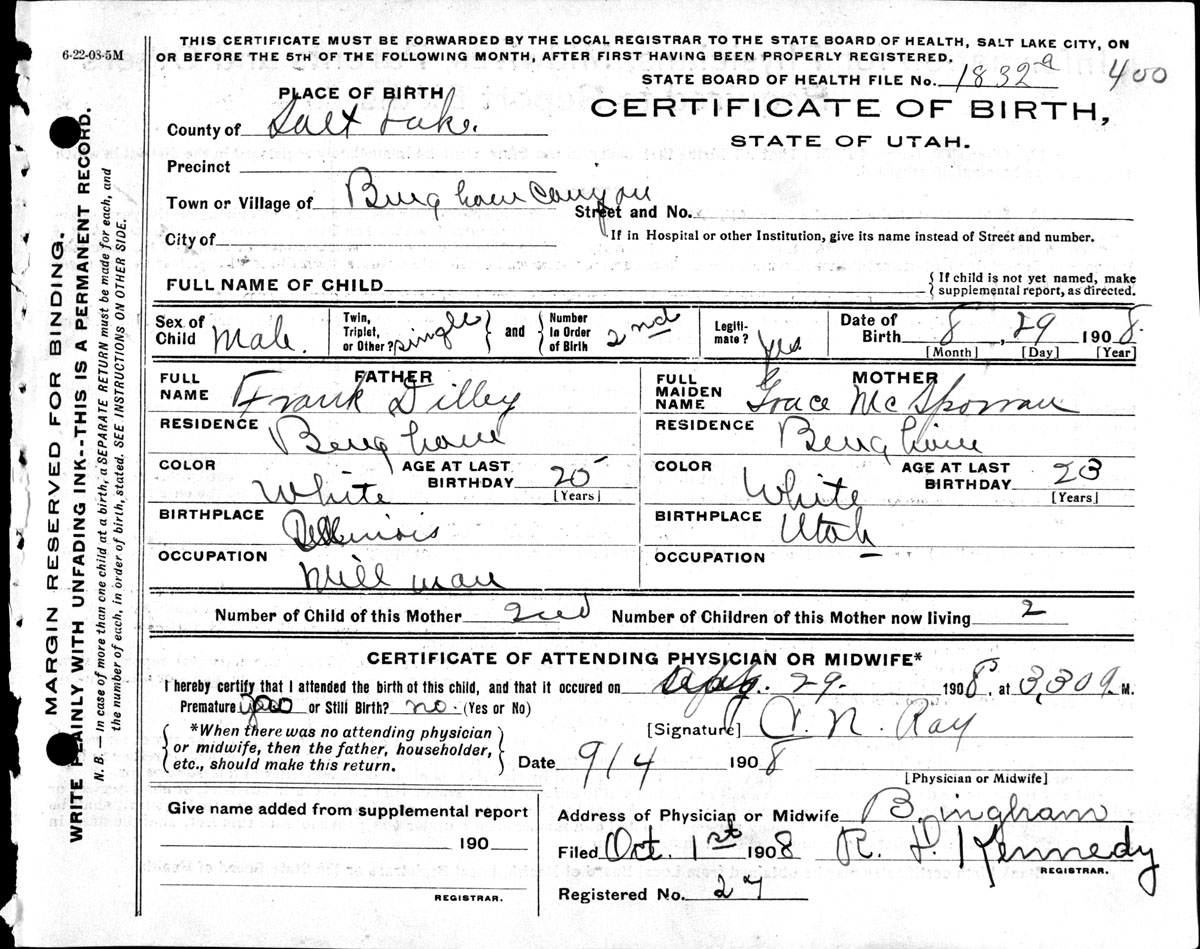 6-22-08-5M
THIS CERTIFICATE MUST BE FORWARDED BY THE LOCAL REGISTRAR TO THE STATE BOARD OF HEALTH, SALT LAKE CITY, ON
OR BEFORE THE 5TH OF THE FOLLOWING MONTH, AFTER FIRST HAVING BEEN PROPERLY REGISTERED.
STATE BOARD OF HEALTH FILE No. 1832 a 400
PLACE OF BIRTH
CERTIFICATE OF BIRTH,
STATE OF UTAH.
County of Salt Lake.
Precinct
Town or Village of Bingham Canyon
Street and No.
City of
If in Hospital or other Institution, give its name instead of Street and number.
FULL NAME OF CHILD
{ If child is not yet named, make
supplemental report, as directed.
Sex of Child Male.
Twin, Triplet, or Other? single } and { Number In Order of Birth 2nd
Legitimate? Yes.
Date of Birth 8, 29 1908.
[Month] [Day] [Year]
FATHER
FULL NAME Frank Dilley
RESIDENCE Bingham
COLOR White
AGE AT LAST BIRTHDAY 25 [Years]
BIRTHPLACE Illinois
OCCUPATION Mill man
MOTHER
FULL MAIDEN NAME Grace McSporran
RESIDENCE Bingham
COLOR White
AGE AT LAST BIRTHDAY 23 [Years]
BIRTHPLACE Utah
OCCUPATION
Number of Child of this Mother 2nd Number of Children of this Mother now living 2
CERTIFICATE OF ATTENDING PHYSICIAN OR MIDWIFE*
I hereby certify that I attended the birth of this child, and that it occured on 29. 1908, at 3,30 a. M.
Premature or Still Birth? no. (Yes or No)
[Signature] N. Ray
{ *When there was no attending physician
or midwife, then the father, householder,
etc., should make this return. }
Date 9/4 1908
[Physician or Midwife]
Give name added from supplemental report
190
REGISTRAR.
Address of Physician or Midwife Bingham
Filed Oct. 1st 1908 R. H. Kennedy
REGISTRAR.
Registered No. 27
MARGIN RESERVED FOR BINDING.
WRITE PLAINLY WITH UNFADING INK--THIS IS A PERMANENT RECORD.
N. B. — In case of more than one child at a birth, a SEPARATE RETURN must be made for each, and
the number of each, in order of birth, stated. SEE INSTRUCTIONS ON OTHER SIDE.